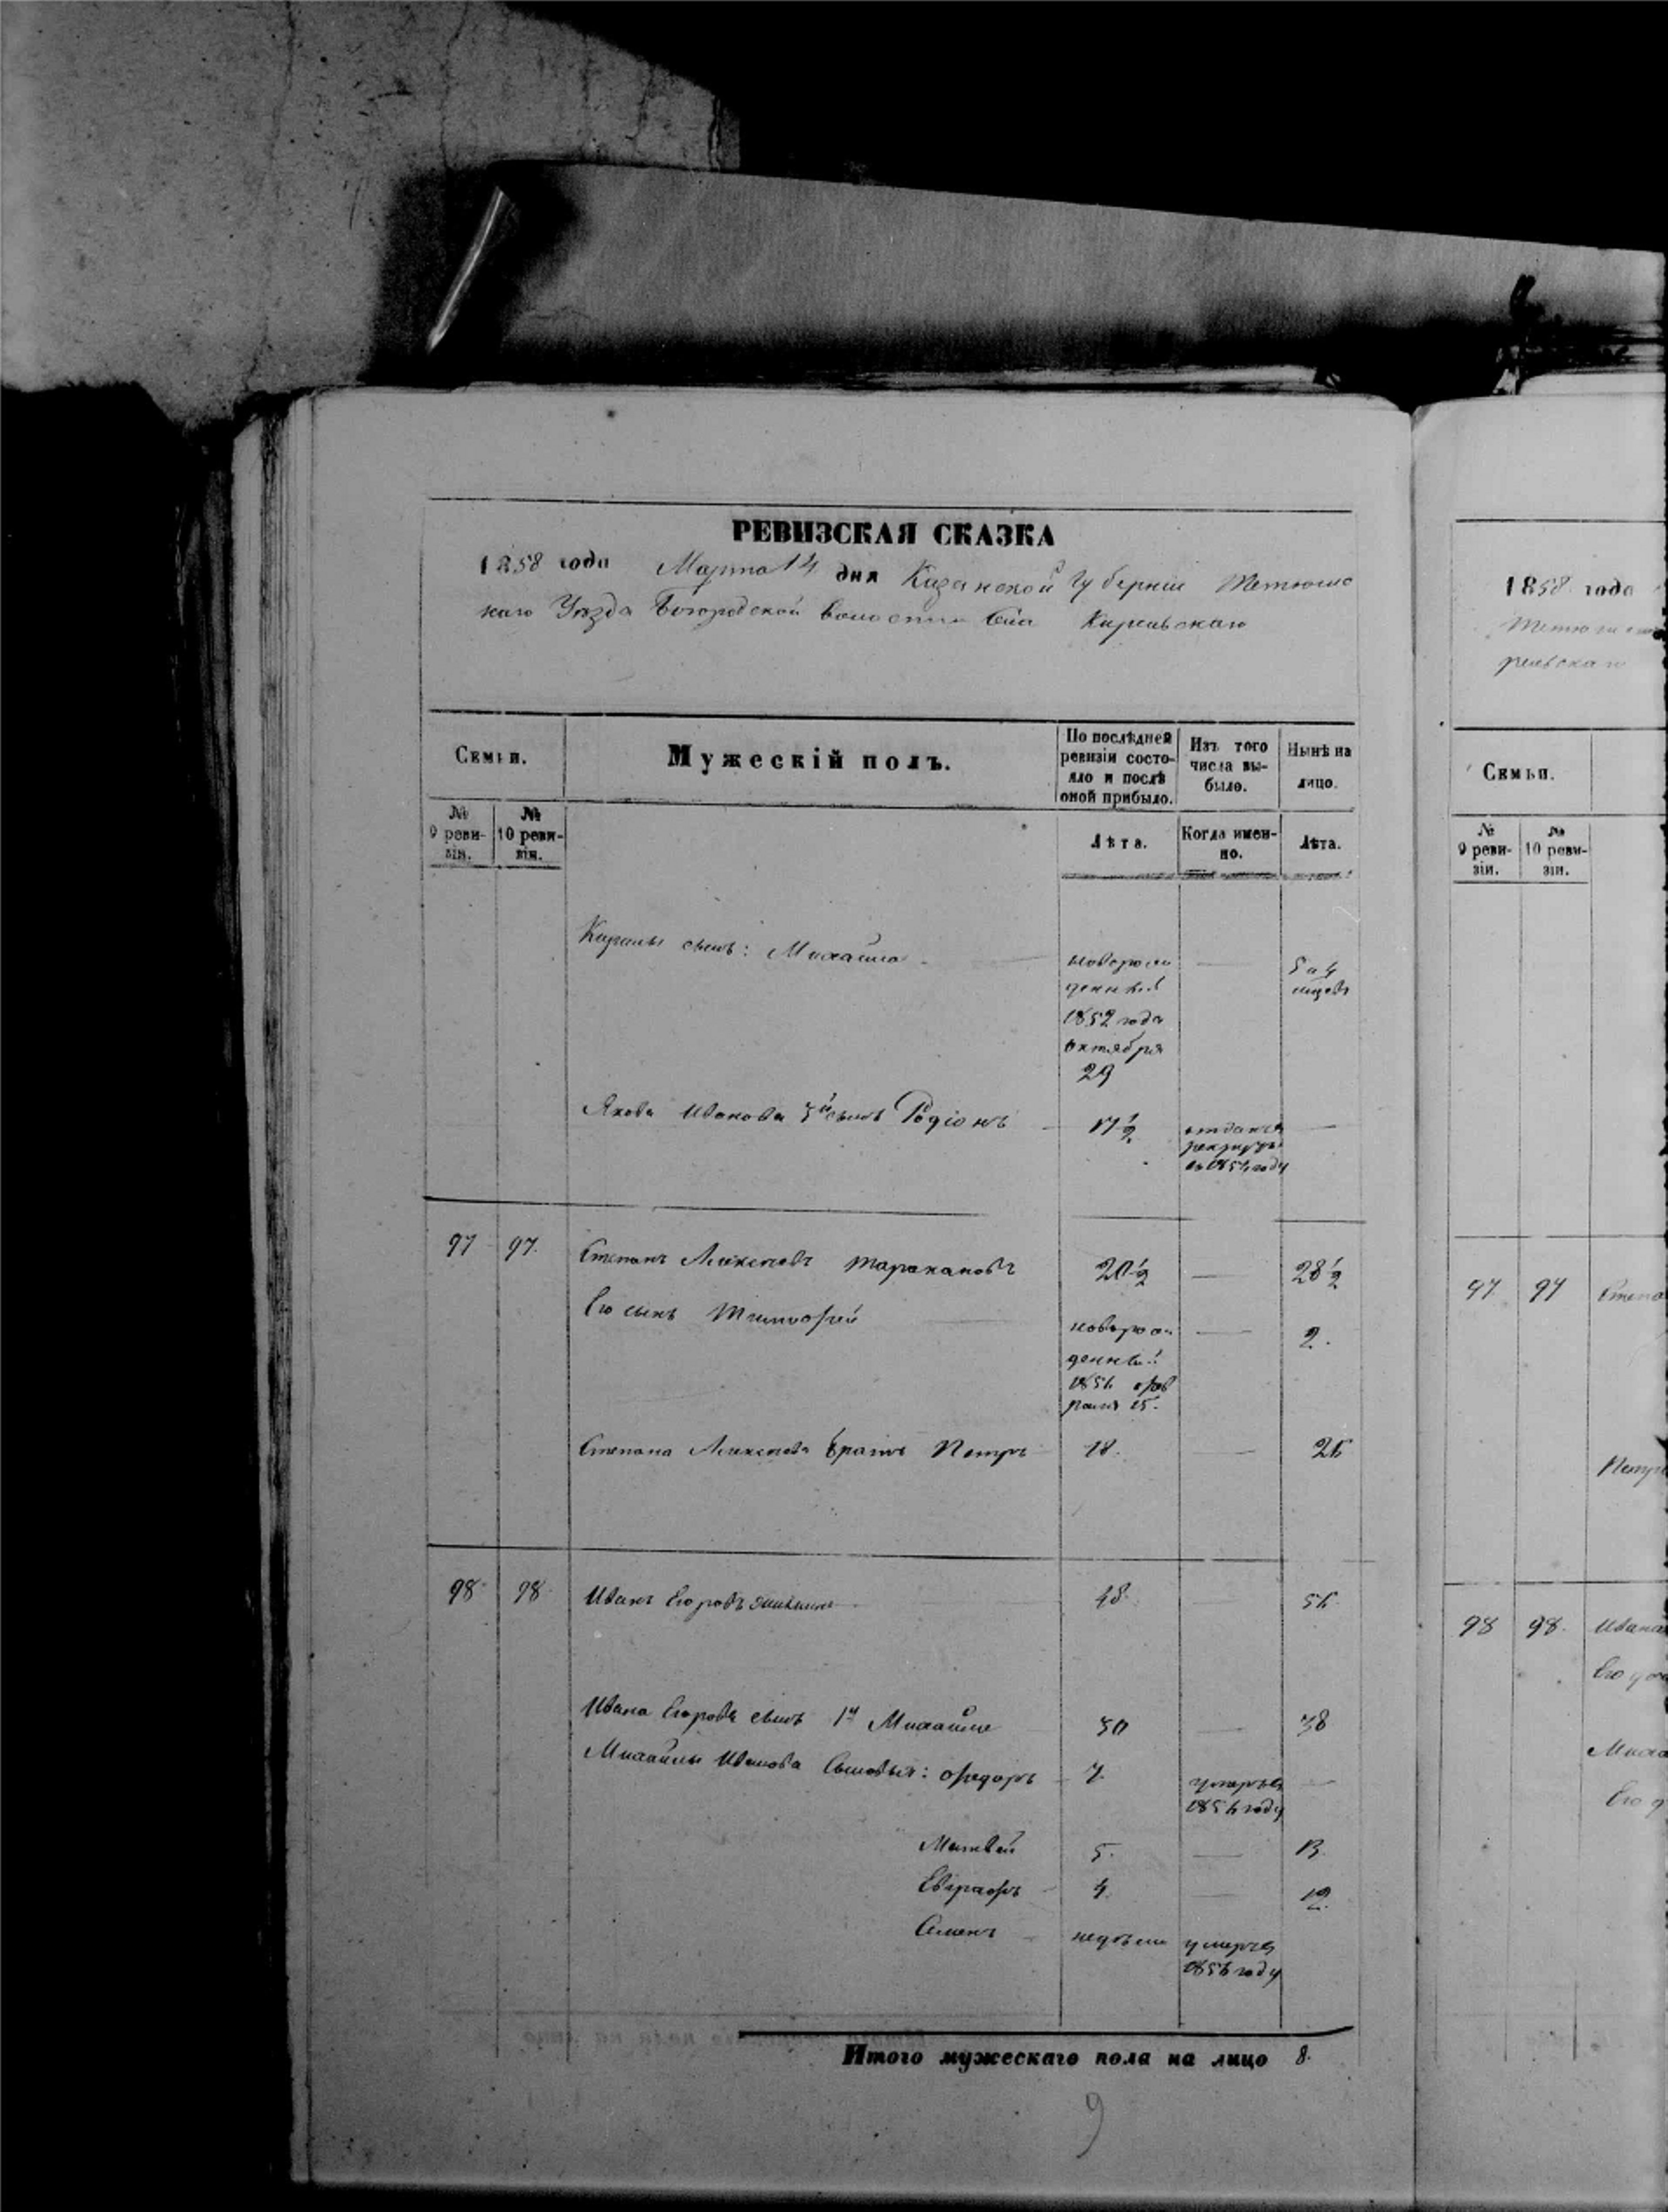 РЕВИЗСКАЯ СКАЗКА
1858 года Марта 14 дня Казанской Губерніи Тетюшс
каго Уѣзда Богородской волости Села Кирельскаго
Семьи.
Мужескій полъ.
По послѣдней ревизіи состо-яло и послѣ оной прибыло.
Изъ того числа вы-было.
Нынѣ на лицо.
№ 9 реви-зіи.
№ 10 реви-зіи.
Лѣта.
Когда имен-но.
Лѣта.
Кирилы сынъ: Михайла
новорож
денный
1852 года
октября
29
5 и 4
мѣсяц
Якова Иванова 3й сынъ Родіонъ 17½
отданъ въ
рекруты
въ 1854 году
97 97. Степанъ Алексѣевъ Таракановъ 20½ 28½
Его сынъ Тимофей
новорож
денный
185 фев
раля 15.
2.
Степана Алексѣева братъ Петръ 18. 26
98 98 Иванъ Егоровъ 48 56
Ивана Егорова сынъ 1й Михайла 30 38
Михайлы Иванова Сыновья: Федоръ 7.
умеръ въ
185 году
Матвей 5. 13.
Евграфъ 4. 12.
Семенъ недѣли
умеръ въ
185 году
Итого мужескаго пола на лицо 8.
9
1858 года
Тетюшска
рельскаго
Семьи.
№ 9 реви-зіи.
№ 10 реви-зіи.
97 97 Степа
Петра
98 98. Ивана
Его
Миха
Его